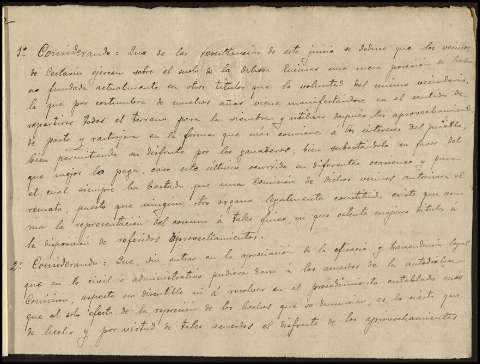 1º Considerando: Que de las resultancias de este juicio se deduce que los vecinos
de ejercen sobre el suelo de la dehesa una mera posesión de hecho
no fundada actualmente en otros títulos que la voluntad del mismo vecindario,
la que por costumbre de muchos años viene manifestándose en el sentido de
repartirse todos el terreno para la siembra y utilizar después los aprovechamientos
de pasto y rastrojera en la forma que más conviene á los intereses del pueblo,
bien permitiendo su disfrute por los ganaderos, bien subastándolo en favor del
que mejor lo paga, caso este último ocurrido en diferentes ocasiones y para
el cual siempre ha bastado que una Comisión de dichos vecinos autorice el
remate, puesto que ningún otro órgano legalmente constituido existe que asu-
ma la representación del común á tales fines, ni que ostente ningún título á
la disposición de referidos aprovechamientos.
2º Considerando: Que, sin entrar en la apreciación de la eficacia y trascendencia legal
que en lo civil ó administrativo pudiera darse á los acuerdos de la autodicha
Comisión, aspecto no discutible ni á resolver en el procedimiento entablado más
que al solo efecto de la reposición de los hechos que se denuncian, es lo cierto que
de hecho y por virtud de tales acuerdos el disfrute de los aprovechamientos